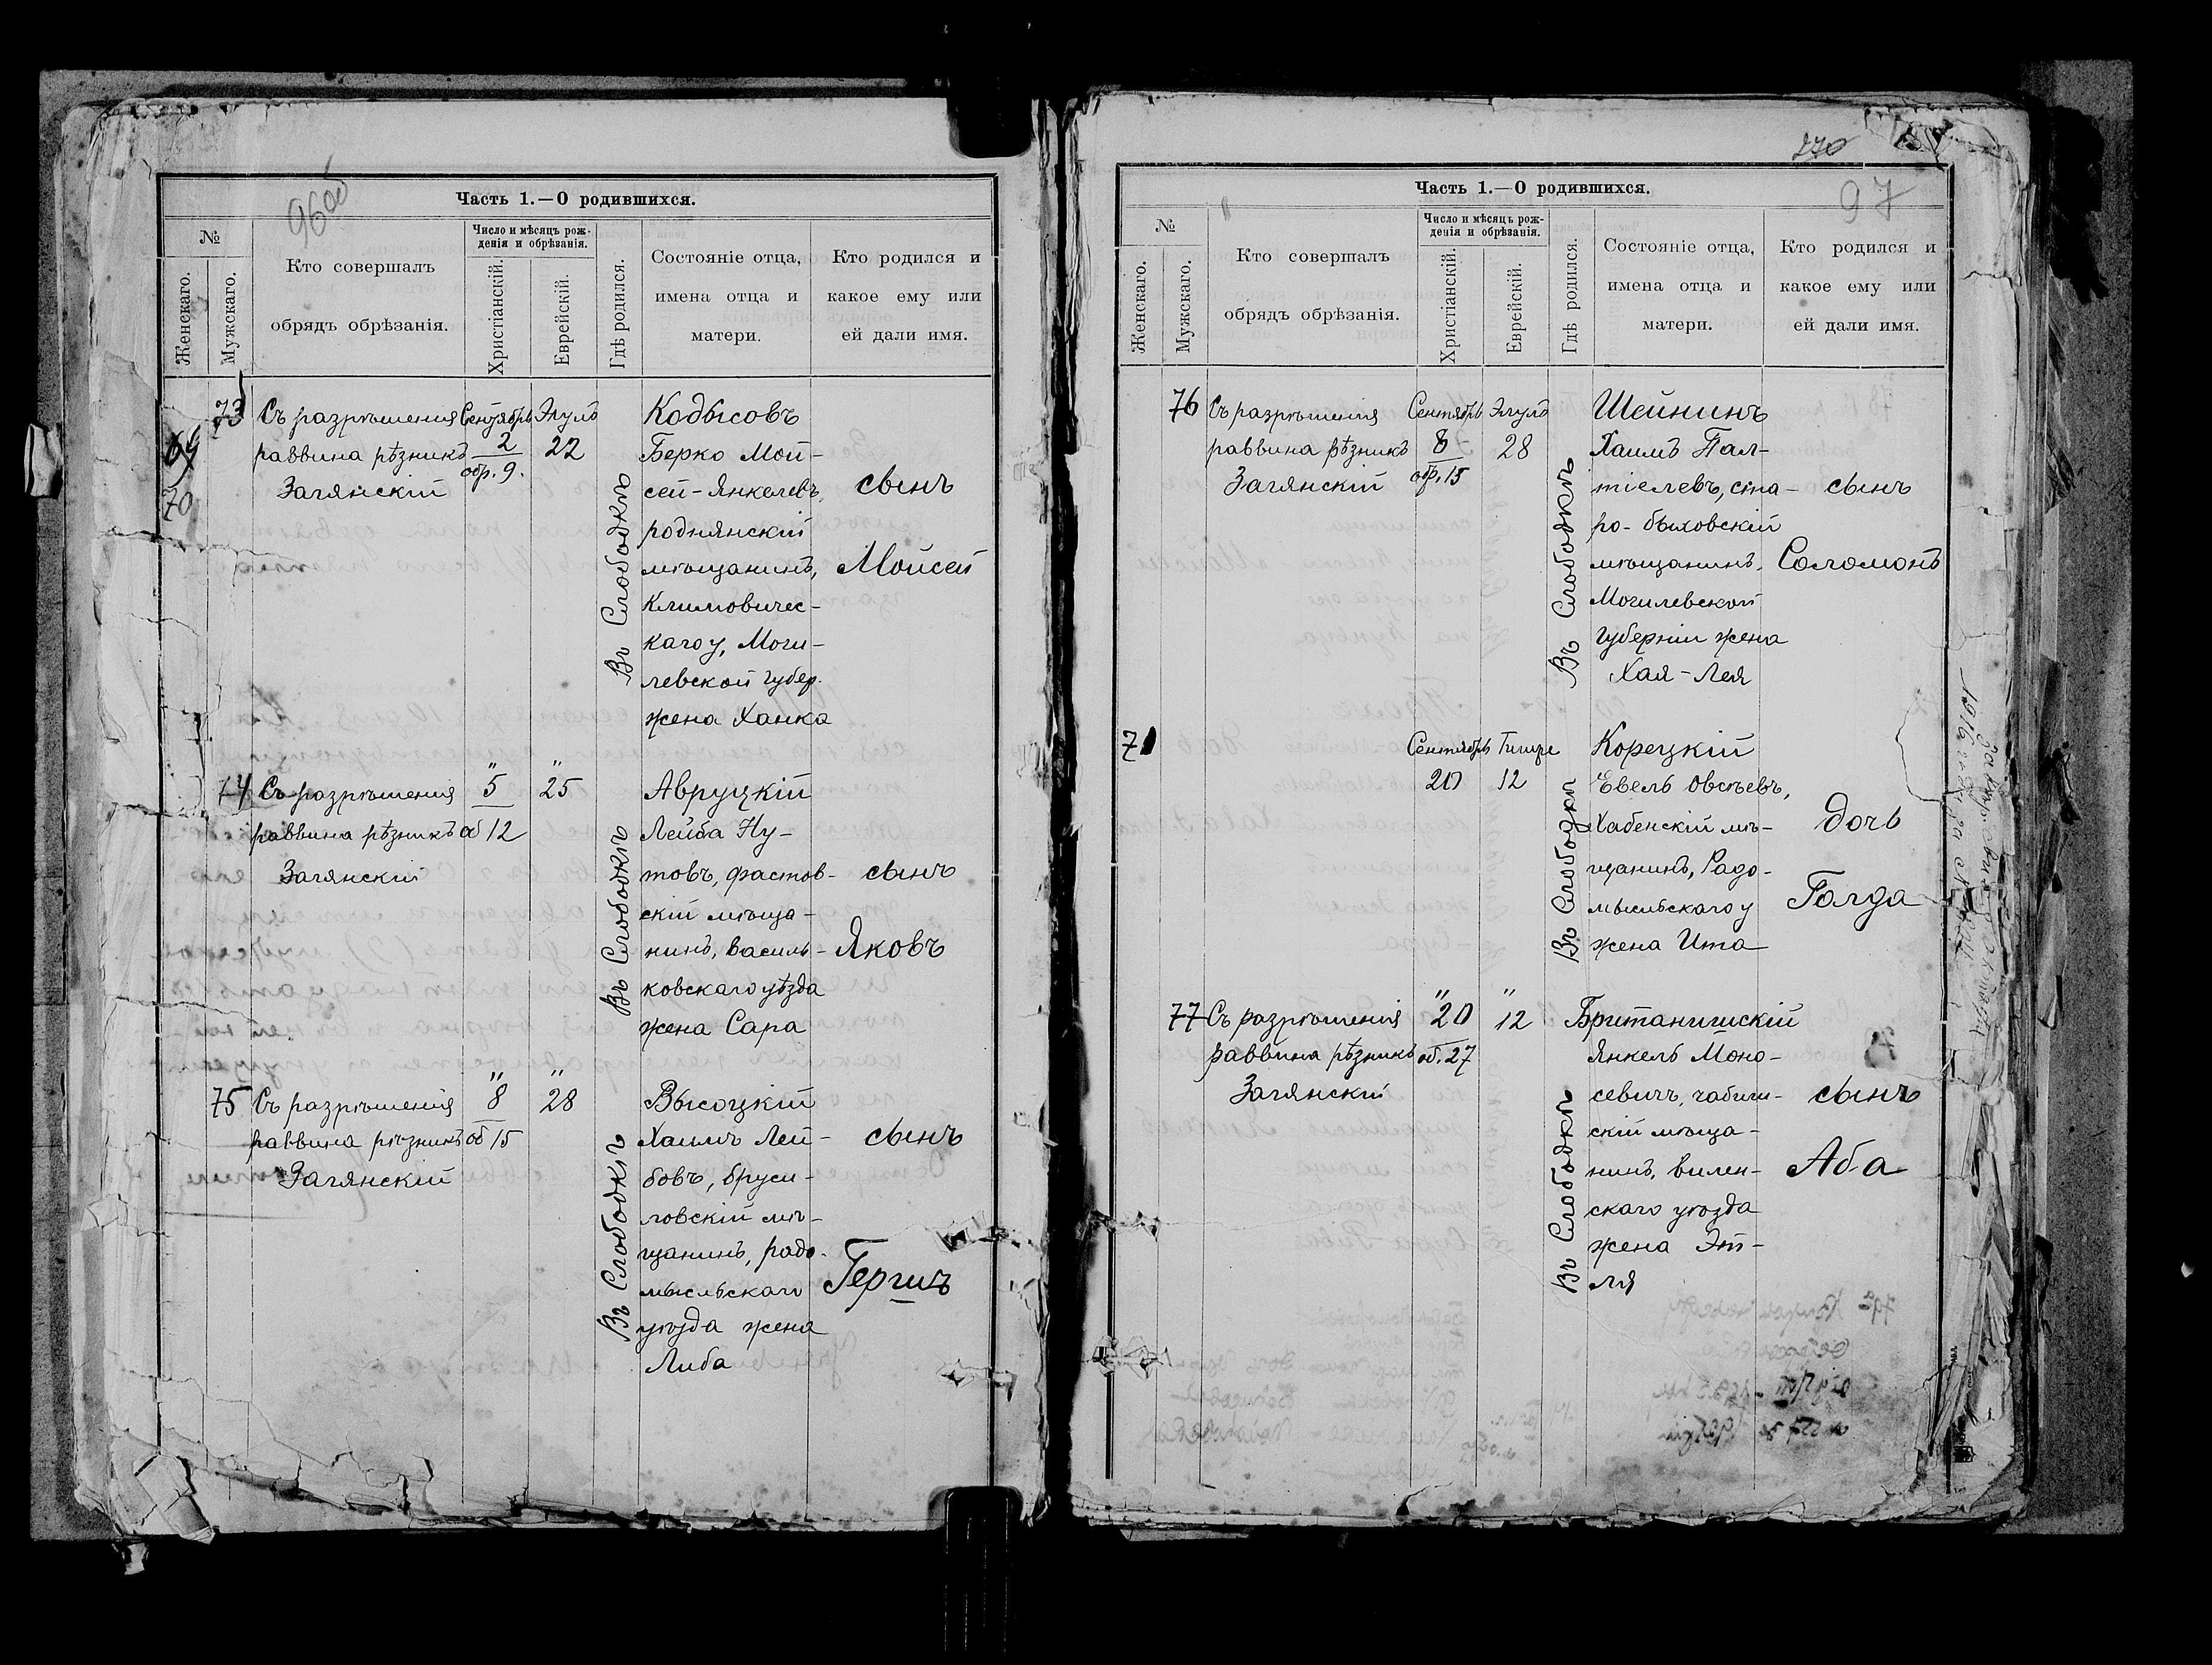 96об
Часть 1.—О родившихся.
№
Женскаго.
Мужскаго.
Кто совершалъ
обрядъ обрѣзанія.
Число и мѣсяцъ рож-
денія и обрѣзанія.
Христіанскій.
Еврейскій.
Гдѣ родился.
Состояніе отца,
имена отца и
матери.
Кто родился и
какое ему или
ей дали имя.
69
70
73
Съ разрѣшенія
раввина рѣзникъ
Загянскій
Сентябрь
2
обр. 9.
Элулъ
22
Въ Слободкѣ
Кадысовъ
Берко Мой-
сей-Янкелевъ,
роднянскій
мѣщанинъ,
Климовичес-
каго у, Моги-
левской губер.
жена Ханка
сынъ
Мойсей
74
Съ разрѣшенія
раввина рѣзникъ
Загянскій
" 5
об 12
" 25
Въ Слободкѣ
Авруцкій
Лейба Ну-
товъ, фастов-
скій мѣща-
нинъ, василь-
ковскаго уѣзда
жена Сара
сынъ
Яковъ
75
Съ разрѣшенія
раввина рѣзникъ
Загянскій
" 8
об 15
" 28
Въ Слободкѣ
Высоцкій
Хаимъ Лей-
бовъ, бруси-
ловскій мѣ-
щанинъ, радо-
мысльскаго
уѣзда жена
Либа
сынъ
Гершъ
270
97
Часть 1.—О родившихся.
№
Женскаго.
Мужскаго.
Кто совершалъ
обрядъ обрѣзанія.
Число и мѣсяцъ рож-
денія и обрѣзанія.
Христіанскій.
Еврейскій.
Гдѣ родился.
Состояніе отца,
имена отца и
матери.
Кто родился и
какое ему или
ей дали имя.
76
Съ разрѣшенія
раввина рѣзникъ
Загянскій
Сентябрь
8
обр. 15
Элулъ
28
Въ Слободкѣ
Шейнинъ
Хаимъ Пал-
тіелевъ, ста-
ро-быховскій
мѣщанинъ,
Могилевской
губерніи жена
Хая-Лея
сынъ
Соломонъ
71
Сентябрь
20
Тишре
12
Въ Слободкѣ
Корецкій
Евель Овсѣевъ,
Хабенскій мѣ-
щанинъ, Радо-
мысльскаго у
жена Ита
дочь
Голда
77
Съ разрѣшенія
раввина рѣзникъ
Загянскій
" 20
об. 27
" 12
Въ Слободкѣ
Британишскій
Янкель Моно-
севичъ,
скій мѣща-
нинъ, вилен-
скаго уѣзда
жена Эт-
ля
сынъ
Аба